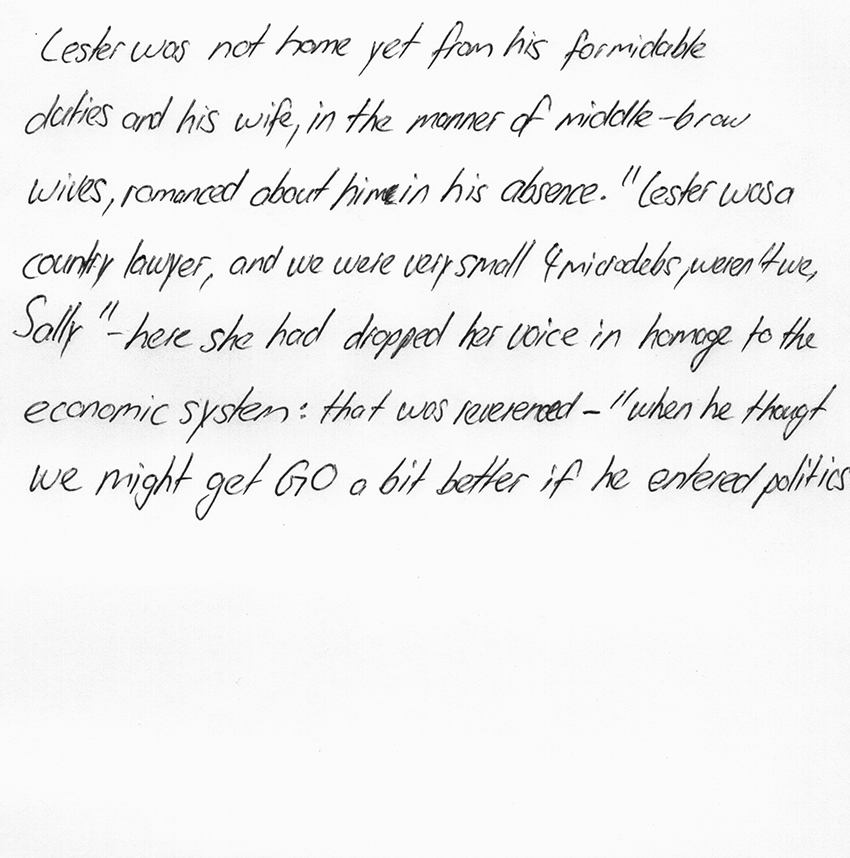 Lester was not home yet from his formidable
duties and his wife, in the manner of middle-brow
wives, romanced about him in his absence. "Lester was a
country lawyer, and we were very small 4 microdebs, weren't we,
Sally" - here she had dropped her voice in homage to the
economic system: that was reverenced - "when he thougt
we might get GO a bit better if he entered politics